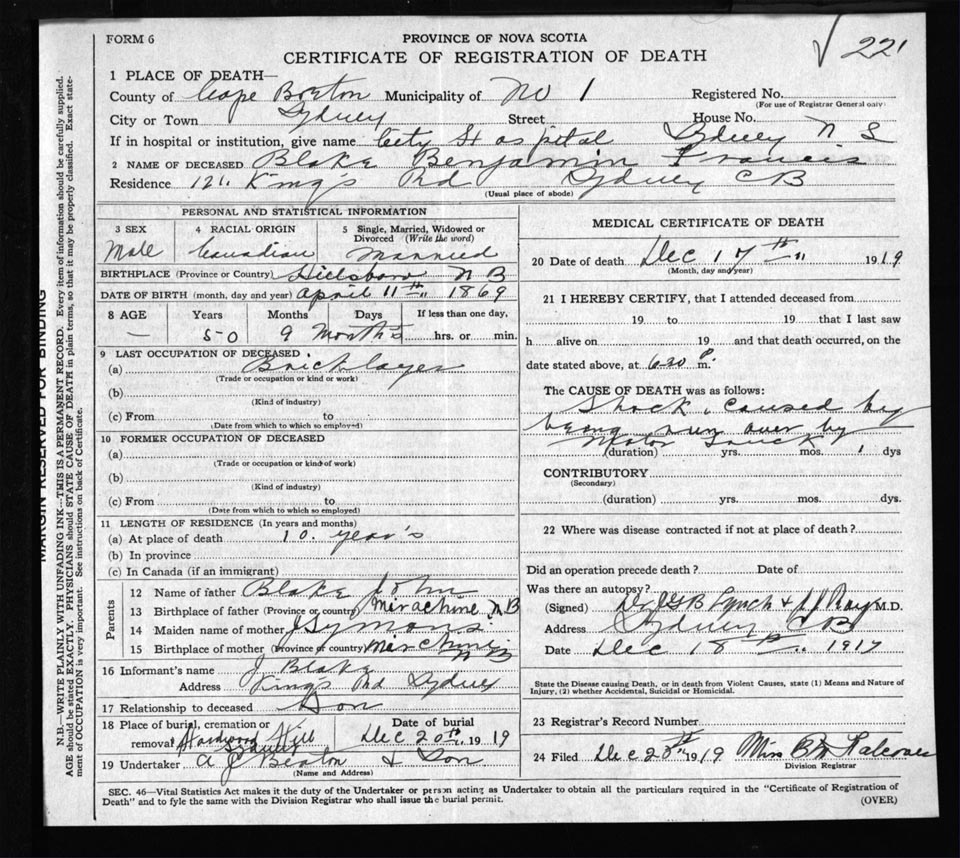 FORM 6
PROVINCE OF NOVA SCOTIA
CERTIFICATE OF REGISTRATION OF DEATH
22'
1 PLACE OF DEATH—
County of Cape Breton Municipality of No 1 Registered No.
(For use of Registrar General only)
City or Town Sydney Street House No.
If in hospital or institution, give name City Hospital Sydney N S
2 NAME OF DECEASED Blake Benjamin Francis
Residence 121 King's Rd Sydney CB
(Usual place of abode)
PERSONAL AND STATISTICAL INFORMATION
3 SEX 4 RACIAL ORIGIN 5 Single, Married, Widowed or Divorced (Write the word)
Male Canadian Married
BIRTHPLACE (Province or Country) Hillsboro N B
DATE OF BIRTH (month, day and year) April 11th 1869
8 AGE Years Months Days If less than one day,
— 50 9 Months hrs. or min.
9 LAST OCCUPATION OF DECEASED
(a) Bricklayer
(Trade or occupation or kind or work)
(b)
(Kind of industry)
(c) From to
(Date from which to which so employed)
10 FORMER OCCUPATION OF DECEASED
(a)
(Trade or occupation or kind of work)
(b)
(Kind of industry)
(c) From to
(Date from which to which so employed)
11 LENGTH OF RESIDENCE (In years and months)
(a) At place of death 10. year's
(b) In province
(c) In Canada (if an immigrant)
Parents
12 Name of father Blake John
13 Birthplace of father (Province or country) Mirachine N B
14 Maiden name of mother J Symons
15 Birthplace of mother (Province or country)
16 Informant's name J Blake
Address King's Rd Sydney
17 Relationship to deceased Son
18 Place of burial, cremation or removal Hardwood Hill Sydney
Date of burial Dec 20th 1919
19 Undertaker A J Beaton & Son
(Name and Address)
MEDICAL CERTIFICATE OF DEATH
20 Date of death Dec 17th 1919
(Month, day and year)
21 I HEREBY CERTIFY, that I attended deceased from
19 to 19 that I last saw
h alive on 19 and that death occurred, on the
date stated above, at 6.20 P. m.
The CAUSE OF DEATH was as follows:
Shock, caused by
being run over by
Motor Truck
(duration) yrs. mos. 1 dys
CONTRIBUTORY
(Secondary)
(duration) yrs. mos. dys.
22 Where was disease contracted if not at place of death?
Did an operation precede death? Date of
Was there an autopsy?
(Signed) Lynch & Roy M.D.
Address Sydney CB
Date Dec 18th 1917
State the Disease causing Death, or in death from Violent Causes, state (1) Means and Nature of
Injury, (2) whether Accidental, Suicidal or Homicidal.
23 Registrar's Record Number
24 Filed Dec 20th 1919 Miss
Division Registrar
SEC. 46—Vital Statistics Act makes it the duty of the Undertaker or person acting as Undertaker to obtain all the particulars required in the "Certificate of Registration of
Death" and to fyle the same with the Division Registrar who shall issue the burial permit. (OVER)
MARGIN RESERVED FOR BINDING
N.B.—WRITE PLAINLY WITH UNFADING INK—THIS IS A PERMANENT RECORD. Every item of information should be carefully supplied.
AGE should be stated EXACTLY. PHYSICIANS should STATE CAUSE OF DEATH in plain terms, so that it may be properly classified. Exact state-
ment of OCCUPATION is very important. See instructions on back of Certificate.